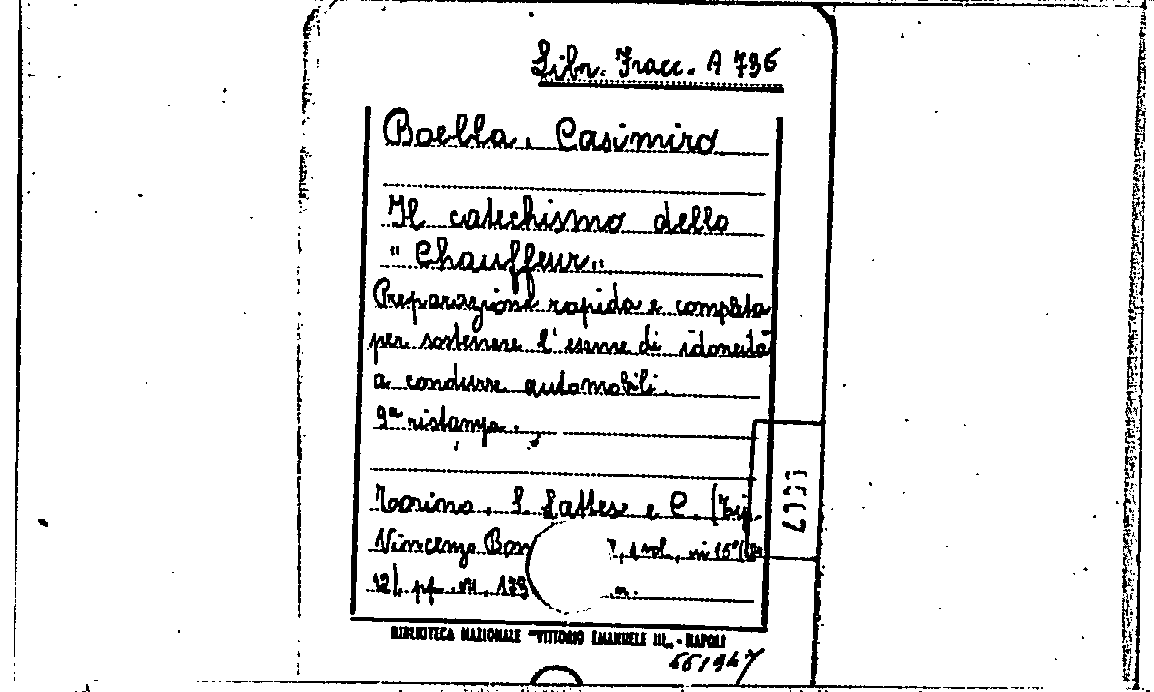 Libr. Fracc. A 736
Boella, Casimiro
Il catechismo dello
"Chauffeur"
Preparazione rapida e completa
per sostenere l'esame di idoneità
a condurre automobili.
9ª ristampa.
Torino, S. Lattes e C. (Tip.
Vincenzo Bon 1 vol., in 16°
12), pp. VII, 179
BIBLIOTECA NAZIONALE "VITTORIO EMANUELE III" - NAPOLI